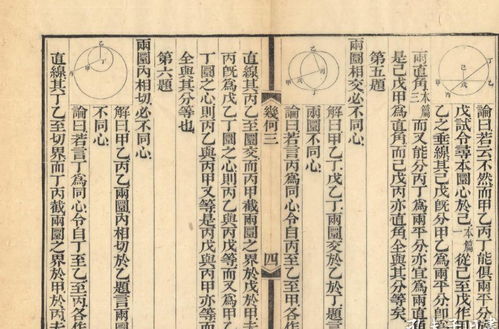 論曰若云不然而甲乙丙丁能俱兩平分
戊試令尋本圜心於己本篇一從己至戊作
乙之垂線其己戊旣分甲乙為兩平分即
兩直角本篇三而又能分丙丁為兩平分亦宜為兩直
是己戊甲為直角而己戊丙亦直角全與其分等矣
第五題
兩圜相交必不同心
解曰甲乙丁戊乙丁兩圜交於乙於丁題言
兩圜不同心
論曰若言丙為同心令自丙至乙至甲各作
幾何三
四
直線其丙乙至圜交而丙甲截兩圜之界於戊於甲
丙旣為戊乙丁圜之心則丙乙與丙戊等而又為甲
丁圜之心則丙乙與丙甲又等是丙戊與丙甲亦等而
全與其分等也
第六題
兩圜內相切必不同心
解曰甲乙丙乙兩圜內相切於乙題言兩圜
不同心
論曰若言丁為同心令自丁至乙至丙各作
直線其丁乙至切界而丁丙截兩圜之界於甲於丙